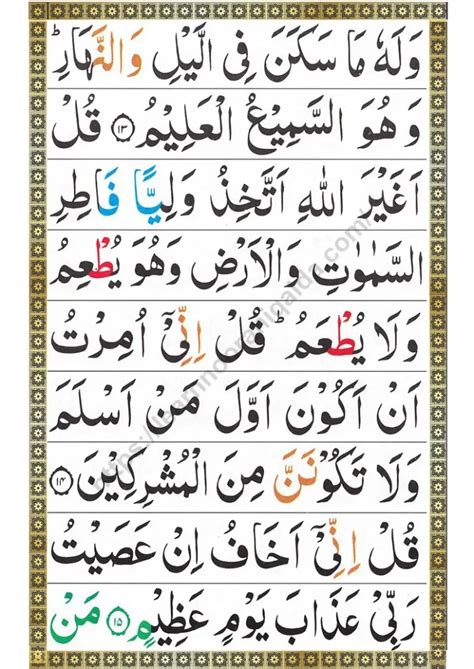 وَلَهٗ مَا سَكَنَ فِى الَّيْلِ وَالنَّهَارِ ؕ
وَهُوَ السَّمِيْعُ الْعَلِيْمُ ۝۱۳ قُلْ
اَغَيْرَ اللّٰهِ اَتَّخِذُ وَلِيًّا فَاطِرِ
السَّمٰوٰتِ وَالْاَرْضِ وَهُوَ يُطْعِمُ
وَلَا يُطْعَمُ ؕ قُلْ اِنِّىْۤ اُمِرْتُ
اَنْ اَكُوْنَ اَوَّلَ مَنْ اَسْلَمَ
وَلَا تَكُوْنَنَّ مِنَ الْمُشْرِكِيْنَ ۝۱۴
قُلْ اِنِّىْۤ اَخَافُ اِنْ عَصَيْتُ
رَبِّىْ عَذَابَ يَوْمٍ عَظِيْمٍ ۝۱۵ مَنْ
https://learnnooraniqaida.com/